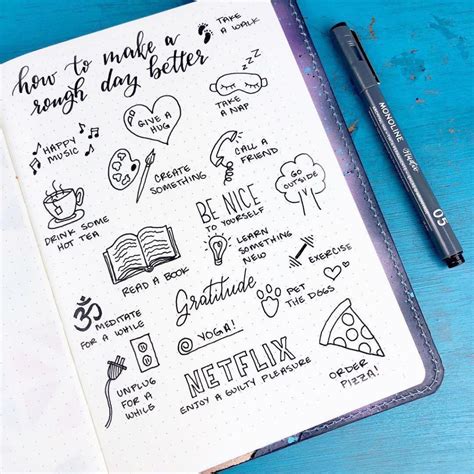 how to make a
rough day better
TAKE
A WALK
ZZZ
TAKE
A NAP
GIVE A
HUG
HAPPY
MUSIC
CREATE
SOMETHING
CALL A
FRIEND
GO
OUTSIDE
DRINK SOME
HOT TEA
BE NICE
TO YOURSELF
READ A BOOK
LEARN
SOMETHING
NEW
EXERCISE
Gratitude
PET
THE DOGS
ॐ
MEDITATE
FOR A WHILE
YOGA!
UNPLUG
FOR A
WHILE
NETFLIX
ENJOY A GUILTY PLEASURE
ORDER
PIZZA!
MONOLINE
Studio
05